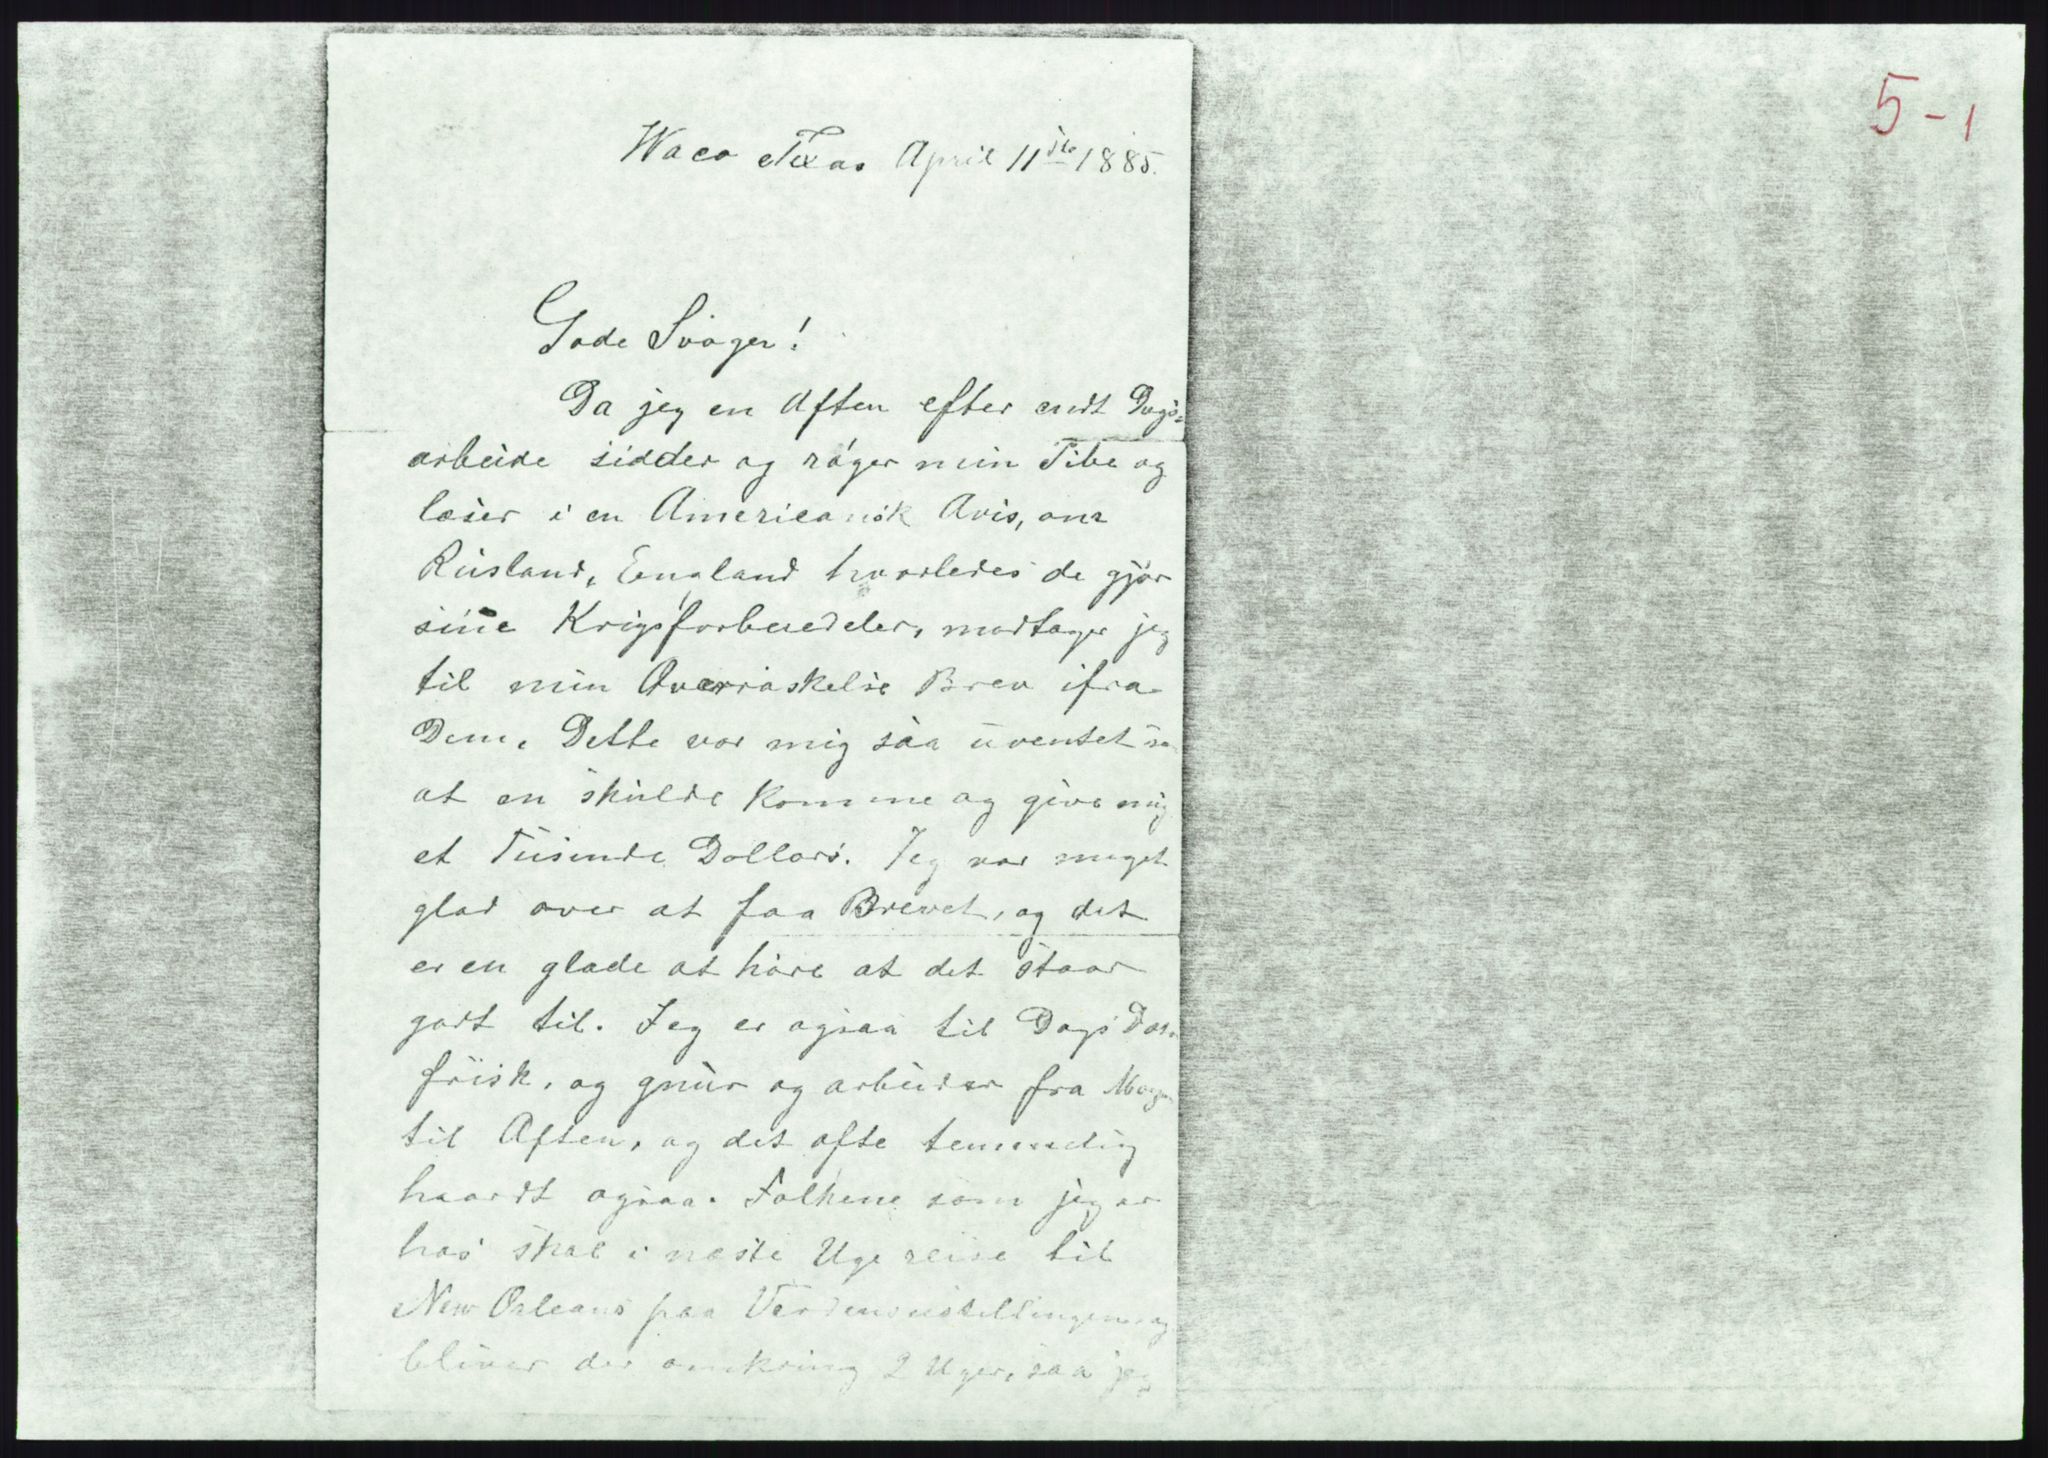 5-1
Waco Texas April 11te 1885.
Gode Svoger!
Da jeg en Aften efter endt Dags=
arbeide sidder og röger min Pibe og
læser i en Americansk Avis, om
Rusland, England hvorledes de gjör
sine Krigsforberedeler, modtager jeg
til min Overraskelse Brev ifra
Dem. Dette var mig saa uventet
at en skulde komme og give mig
et Tusinde Dollars. Jeg var meget
glad over at faa Brevet, og det
er en glæde at höre at det staar
godt til. Jeg er ogsaa til Dags Dato
frisk, og gnur og arbeider fra
til Aften, og det ofte temmelig
haardt ogsaa. Folkene som jeg er
hos skal i næste Uge reise til
New Orleans paa Verdensustillingen og
bliver der omkring 2 Uger, saa jeg